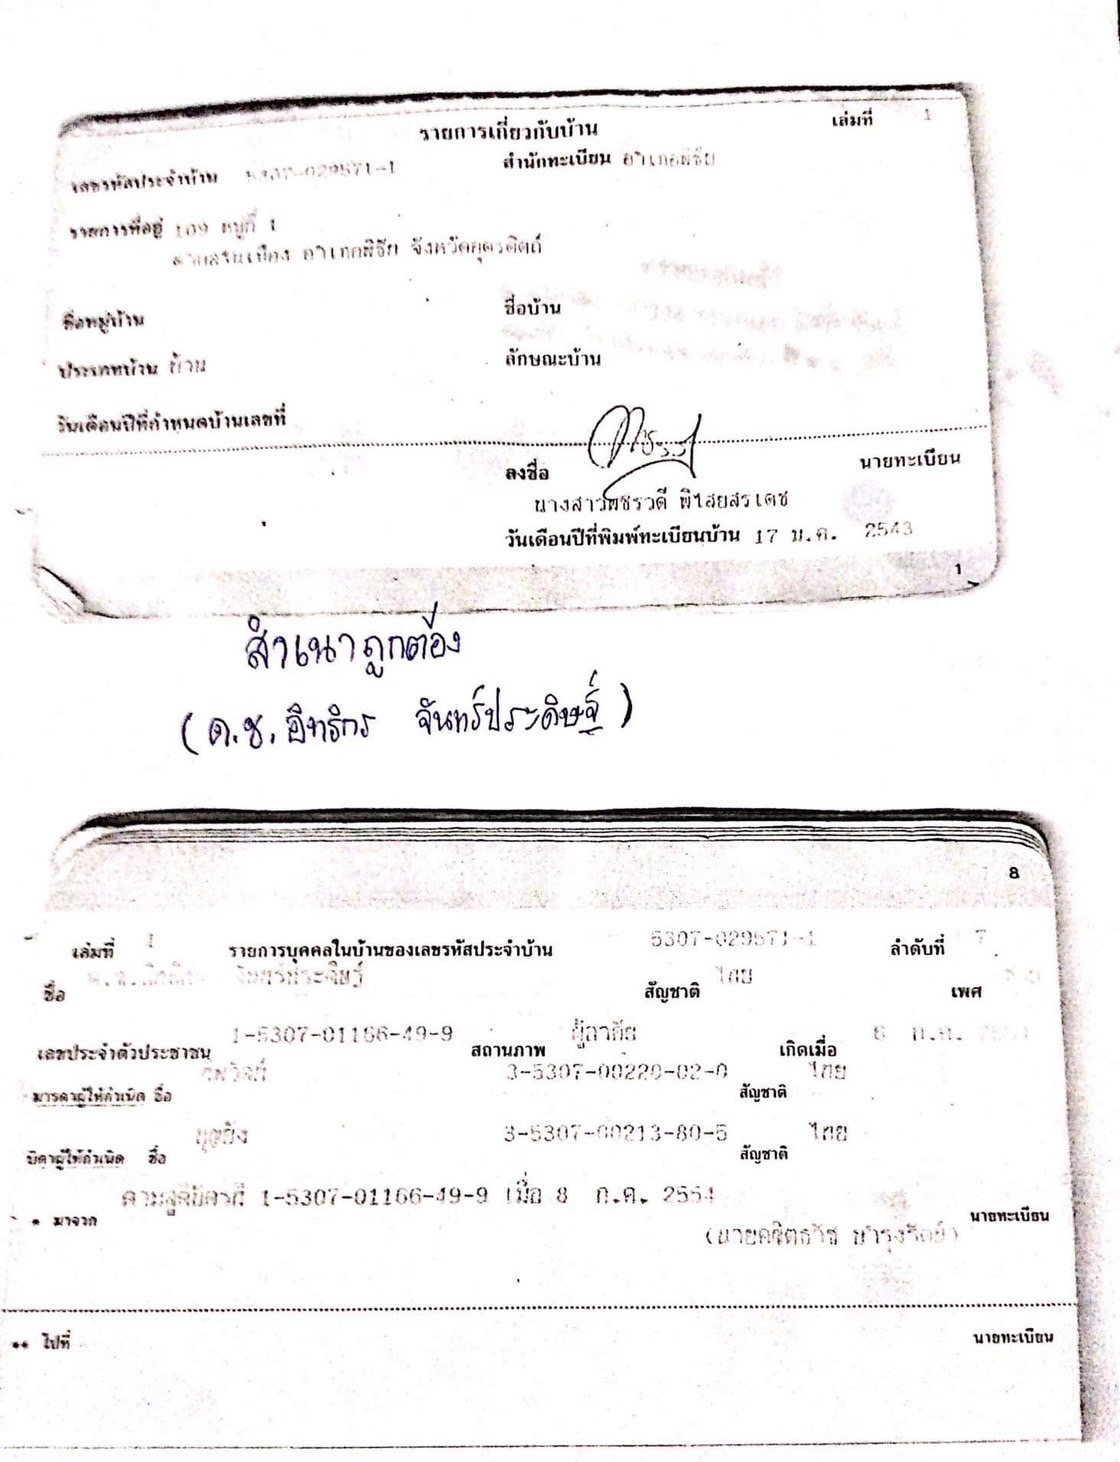 รายการเกี่ยวกับบ้าน เล่มที่ 1
เลขรหัสประจำบ้าน 5307-029571-1 สำนักทะเบียน อำเภอพิชัย
รายการที่อยู่ 109 หมู่ที่ 1
อำเภอพิชัย จังหวัดอุตรดิตถ์
ชื่อหมู่บ้าน ชื่อบ้าน
ประเภทบ้าน บ้าน ลักษณะบ้าน
วันเดือนปีที่กำหนดบ้านเลขที่
ลงชื่อ นายทะเบียน
นางสาวพัชรวดี
วันเดือนปีที่พิมพ์ทะเบียนบ้าน 17 ม.ค. 2543
1
สำเนาถูกต้อง
(ด.ช. อิทธิกร จันทร์ประดิษฐ์)
8
เล่มที่ 1 รายการบุคคลในบ้านของเลขรหัสประจำบ้าน 5307-029571-1 ลำดับที่ 7
ชื่อ จันทร์ประดิษฐ์ สัญชาติ ไทย เพศ
เลขประจำตัวประชาชน 1-5307-01166-49-9 สถานภาพ ผู้อาศัย เกิดเมื่อ 6 ก.ค.
มารดาผู้ให้กำเนิด ชื่อ 3-5307-00220-02-0 สัญชาติ ไทย
บิดาผู้ให้กำเนิด ชื่อ 3-5307-00213-80-5 สัญชาติ ไทย
ตามสูติบัตรที่ 1-5307-01166-49-9 เมื่อ 8 ก.ค. 2554
* มาจาก นายทะเบียน
** ไปที่ นายทะเบียน